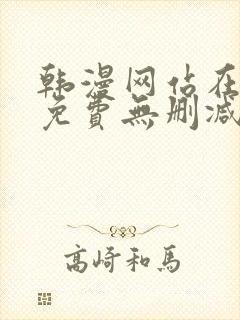 韩漫网站在
免費無删减
高崎和馬